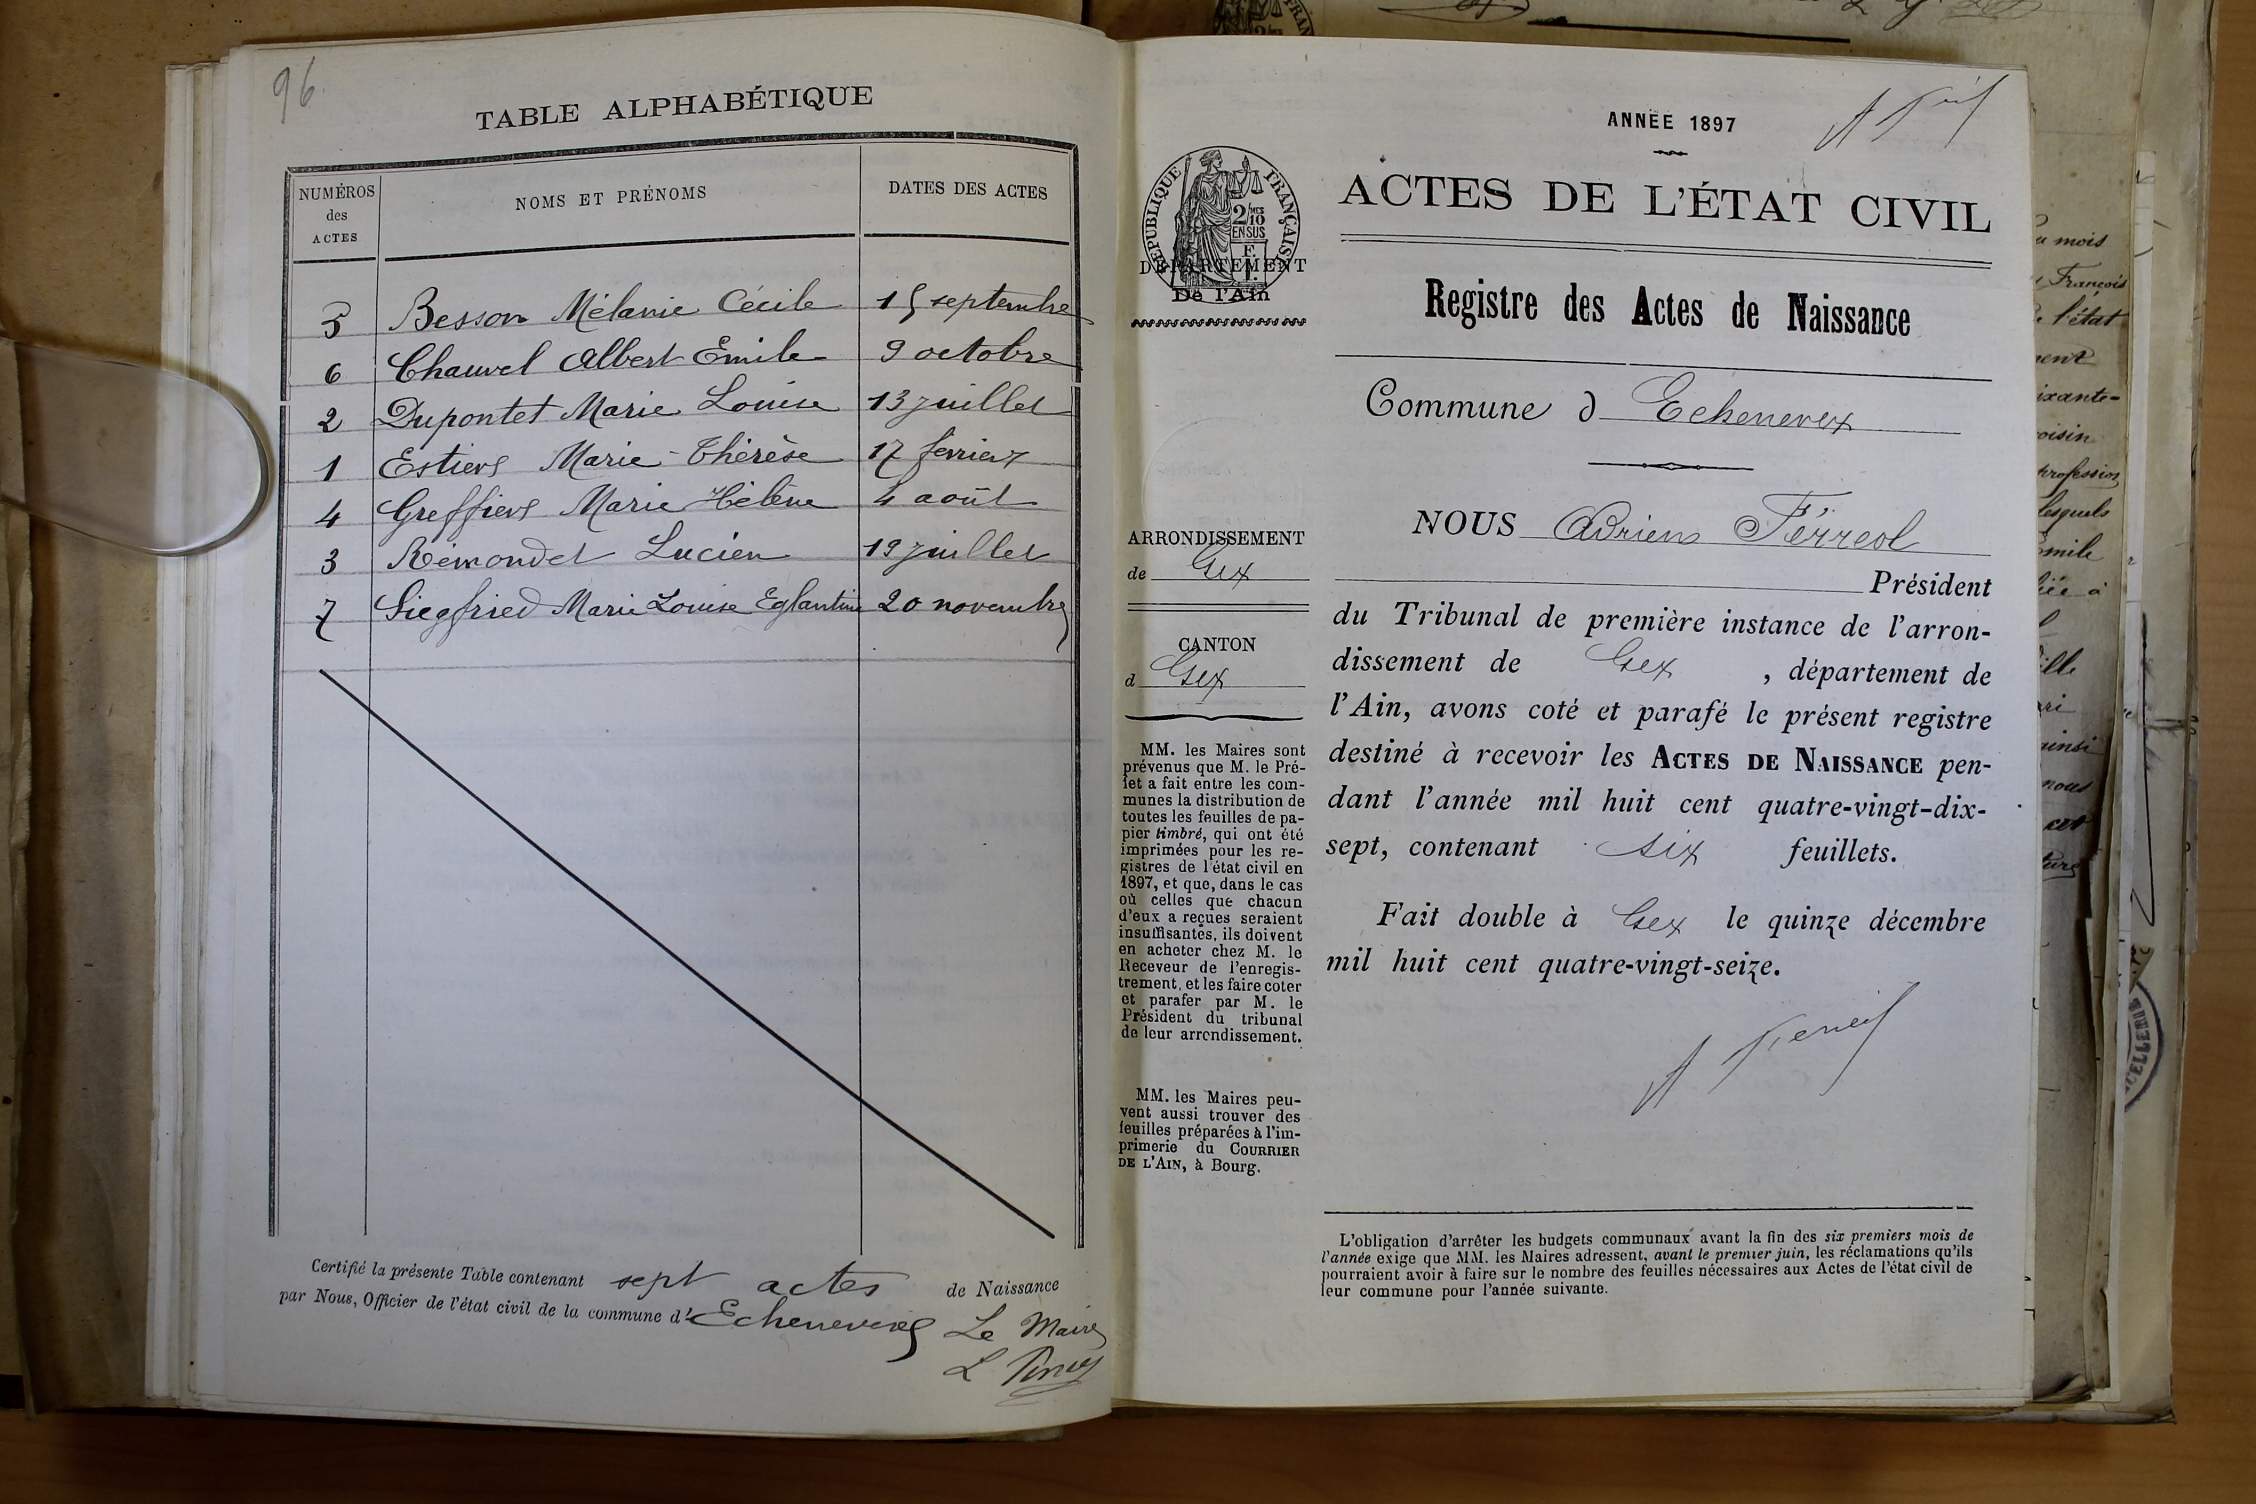 96.
TABLE ALPHABÉTIQUE
NUMÉROS des ACTES NOMS ET PRÉNOMS DATES DES ACTES
5 Besson Mélanie Cécile 15 septembre
6 Chauvel Albert Emile 9 octobre
2 Dupontet Marie Louise 13 juillet
1 Estier Marie-Thérèse 17 fevrier
4 Greffier Marie Hélène 4 août
3 Rémondet Lucien 19 juillet
7 Siegfried Marie Louise Eglantine 20 novembre
Certifié la présente Table contenant sept actes de Naissance
par Nous, Officier de l'état civil de la commune d'Echenevex Le Maire
ANNÉE 1897
ACTES DE L'ÉTAT CIVIL
RÉPUBLIQUE FRANÇAISE
2/10 EN SUS
DÉPARTEMENT
De l'Ain
Registre des Actes de Naissance
Commune d Echenevex
ARRONDISSEMENT
de Gex
CANTON
d Gex
MM. les Maires sont
prévenus que M. le Pré-
fet a fait entre les com-
munes la distribution de
toutes les feuilles de pa-
pier timbré, qui ont été
imprimées pour les re-
gistres de l'état civil en
1897, et que, dans le cas
où celles que chacun
d'eux a reçues seraient
insuffisantes, ils doivent
en acheter chez M. le
Receveur de l'enregis-
trement, et les faire coter
et parafer par M. le
Président du tribunal
de leur arrondissement.
MM. les Maires peu-
vent aussi trouver des
feuilles préparées à l'im-
primerie du COURRIER
DE L'AIN, à Bourg.
NOUS Adrien Férréol
Président
du Tribunal de première instance de l'arron-
dissement de Gex , département de
l'Ain, avons coté et parafé le présent registre
destiné à recevoir les ACTES DE NAISSANCE pen-
dant l'année mil huit cent quatre-vingt-dix-
sept, contenant six feuillets.
Fait double à Gex le quinze décembre
mil huit cent quatre-vingt-seize.
L'obligation d'arrêter les budgets communaux avant la fin des six premiers mois de
l'année exige que MM. les Maires adressent, avant le premier juin, les réclamations qu'ils
pourraient avoir à faire sur le nombre des feuilles nécessaires aux Actes de l'état civil de
leur commune pour l'année suivante.
mois
François
l'état
ixante-
voisin
profession
lesquels
Emile
ainsi
nous
cet